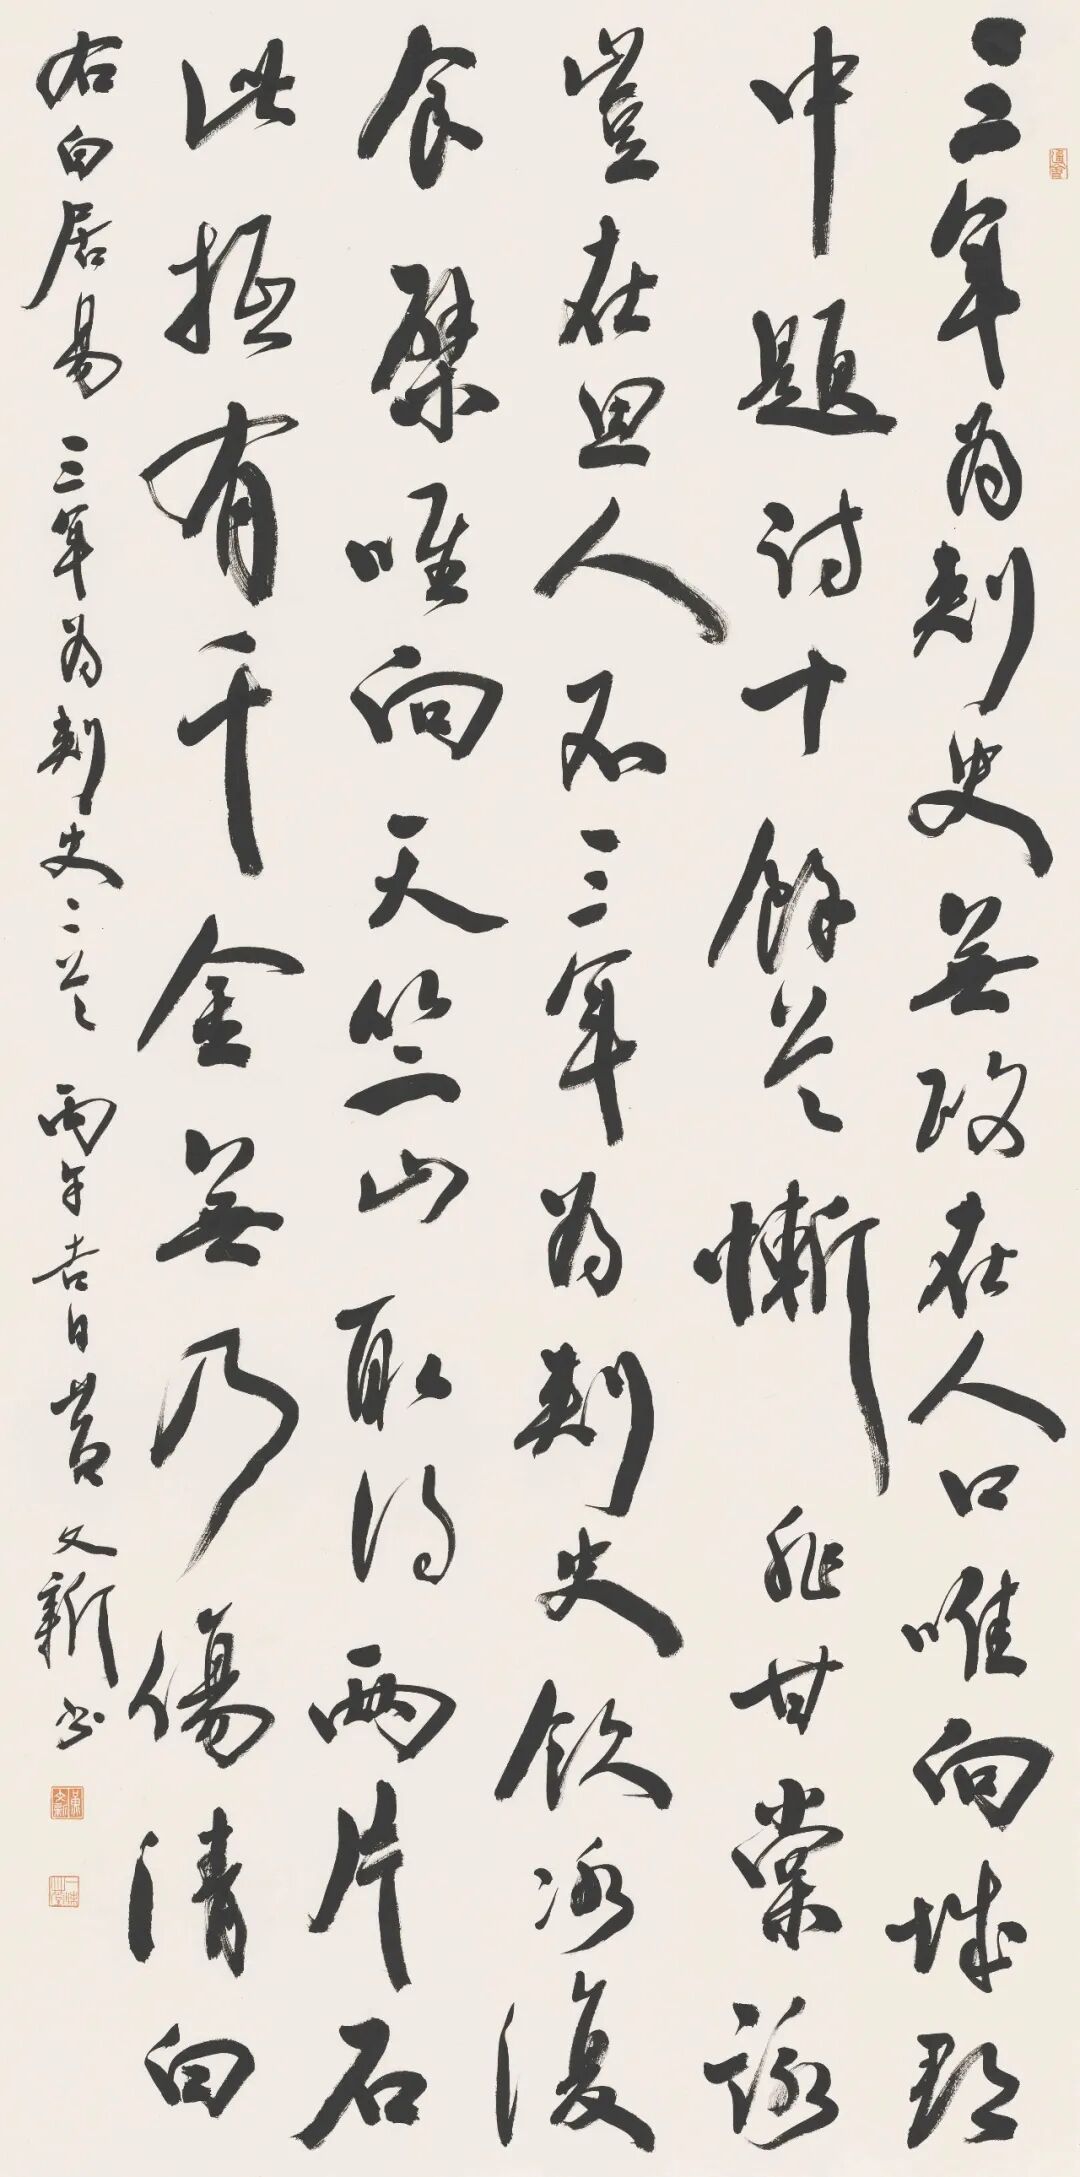 三年为刺史無政在人口唯向城郡
中題诗十餘首慚非甘棠詠
豈在思人不三年为刺史飲冰復
食檗唯向天竺山取得兩片石
此抵有千金無乃傷清白
右白居易三年为刺史二首 丙午吉日 文新书